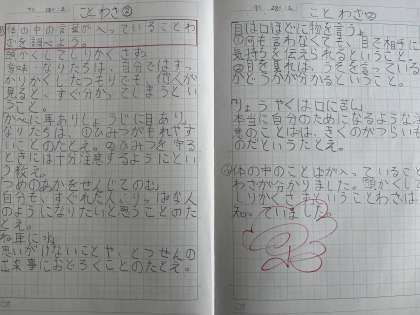 ことわざ②
体の中の言葉が入っていることわ
ざを調べよう。
頭かくしてしりかくさず
意味 なりたちは、自分ではすっ
かりかくしたつもりでも、他人が
見ると、すぐ分かってしまうとい
うこと。
かべに耳ありしょうじに目あり
なりたちは、のひみつがもれやす
いことのたとえ。のひみつを守る
ときには十分注意するようにとい
う教え。
つめのあかをせんじてのむ
自分も、すぐれた人、りっぱな人
のようになりたいと思うことのた
とえ。
ね耳に水
思いがけないことや、とつぜんの
出来事におどろくことのたとえ。
ことわざ②
目は口ほどに物を言う
①何も言わなくても、目で相手に
気持ちを伝えられるということ。
②目を見れば、うそを言っている
かどうかが分かるということ。
りょうやくは口に苦し
本当に自分のためになるような注
意のことばは、きくのがつらいも
のだというたとえ。
体の中のことばが入っていることわ
わざが分かりました。頭かくし
しりかくさずということわざは
知っていました。